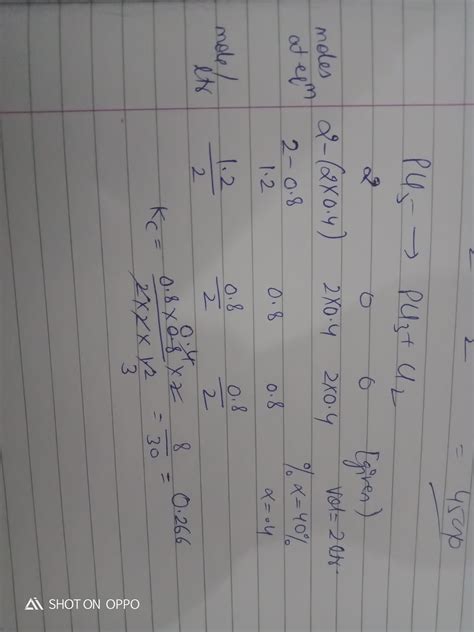 2 2 = 45cp
PCl5 → PCl3 + Cl2
2 0 0 (given)
moles at eqm 2-(2×0.4) 2×0.4 2×0.4 Vol = 2 ltr.
2-0.8 % x = 40%
1.2 0.8 0.8 x = .4
mole/ltr 1.2/2 0.8/2 0.8/2
Kc = 0.8 × 0.8 × 2 / 2 × 2 × 1.2 = 8/30 = 0.266
0.4
3
SHOT ON OPPO